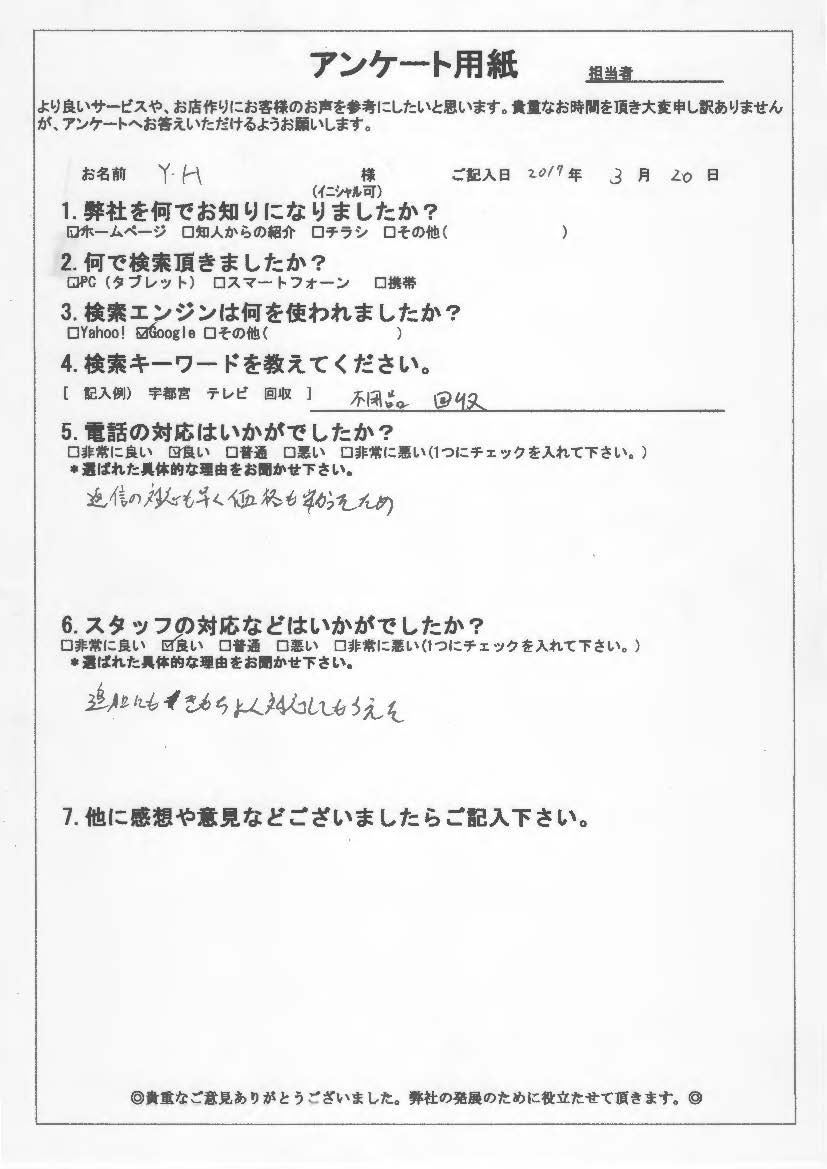 アンケート用紙
担当者
より良いサービスや、お店作りにお客様のお声を参考にしたいと思います。貴重なお時間を頂き大変申し訳ありません
が、アンケートへお答えいただけるようお願いします。
お名前 Y・H 様 ご記入日 2017年 3月 20日
(イニシャル可)
1. 弊社を何でお知りになりましたか？
☑ホームページ □知人からの紹介 □チラシ □その他( )
2. 何で検索頂きましたか？
☑PC（タブレット） □スマートフォーン □携帯
3. 検索エンジンは何を使われましたか？
□Yahoo! ☑Google □その他( )
4. 検索キーワードを教えてください。
[ 記入例） 宇都宮 テレビ 回収 ] 不用品 回収
5. 電話の対応はいかがでしたか？
□非常に良い ☑良い □普通 □悪い □非常に悪い(1つにチェックを入れて下さい。)
＊選ばれた具体的な理由をお聞かせ下さい。
返信の対応も早く価格も安かったため
6. スタッフの対応などはいかがでしたか？
□非常に良い ☑良い □普通 □悪い □非常に悪い(1つにチェックを入れて下さい。)
＊選ばれた具体的な理由をお聞かせ下さい。
追加にもきもちよく対応してもらえた
7. 他に感想や意見などございましたらご記入下さい。
◎貴重なご意見ありがとうございました。弊社の発展のために役立たせて頂きます。◎